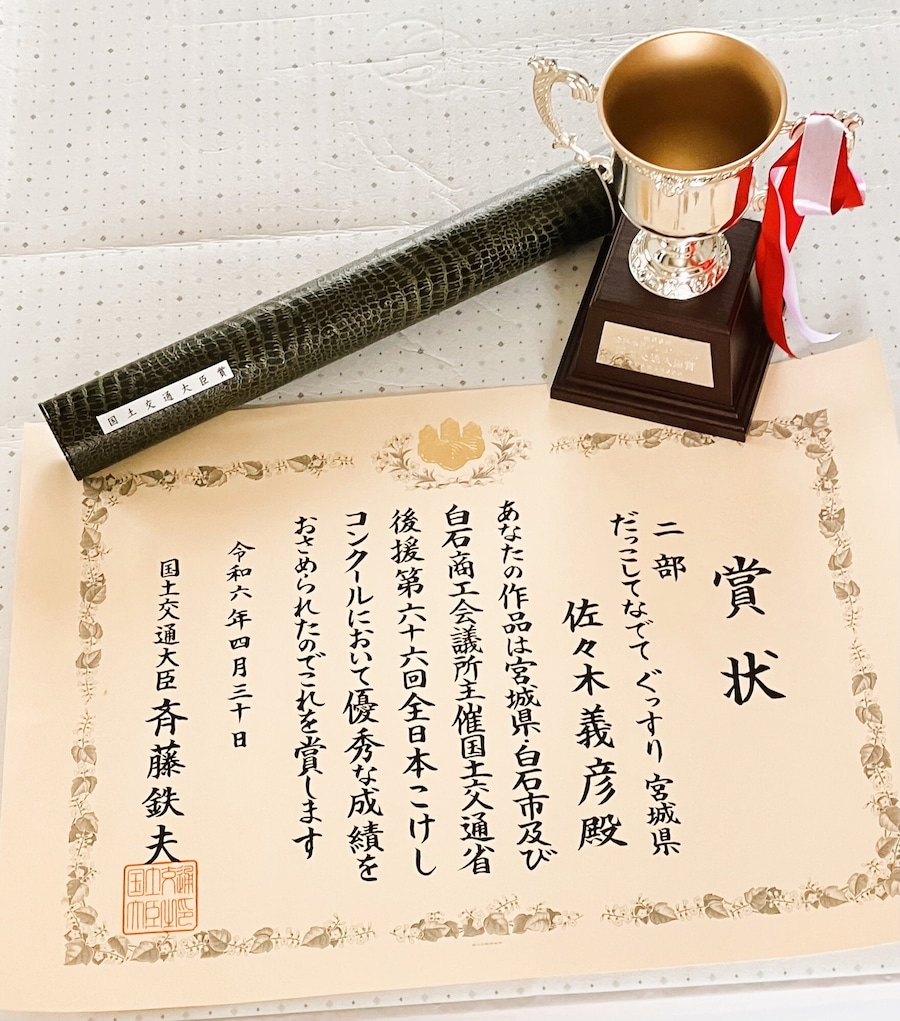 賞状
二部
だっこしてなでて ぐっすり 宮城県
佐々木義彦殿
あなたの作品は宮城県・白石市及び
白石商工会議所主催国土交通省
後援第六十六回全日本こけし
コンクールにおいて優秀な成績を
おさめられたのでこれを賞します
令和六年四月三十日
国土交通大臣 斉藤鉄夫
国土交通
大臣之印
国土交通大臣賞